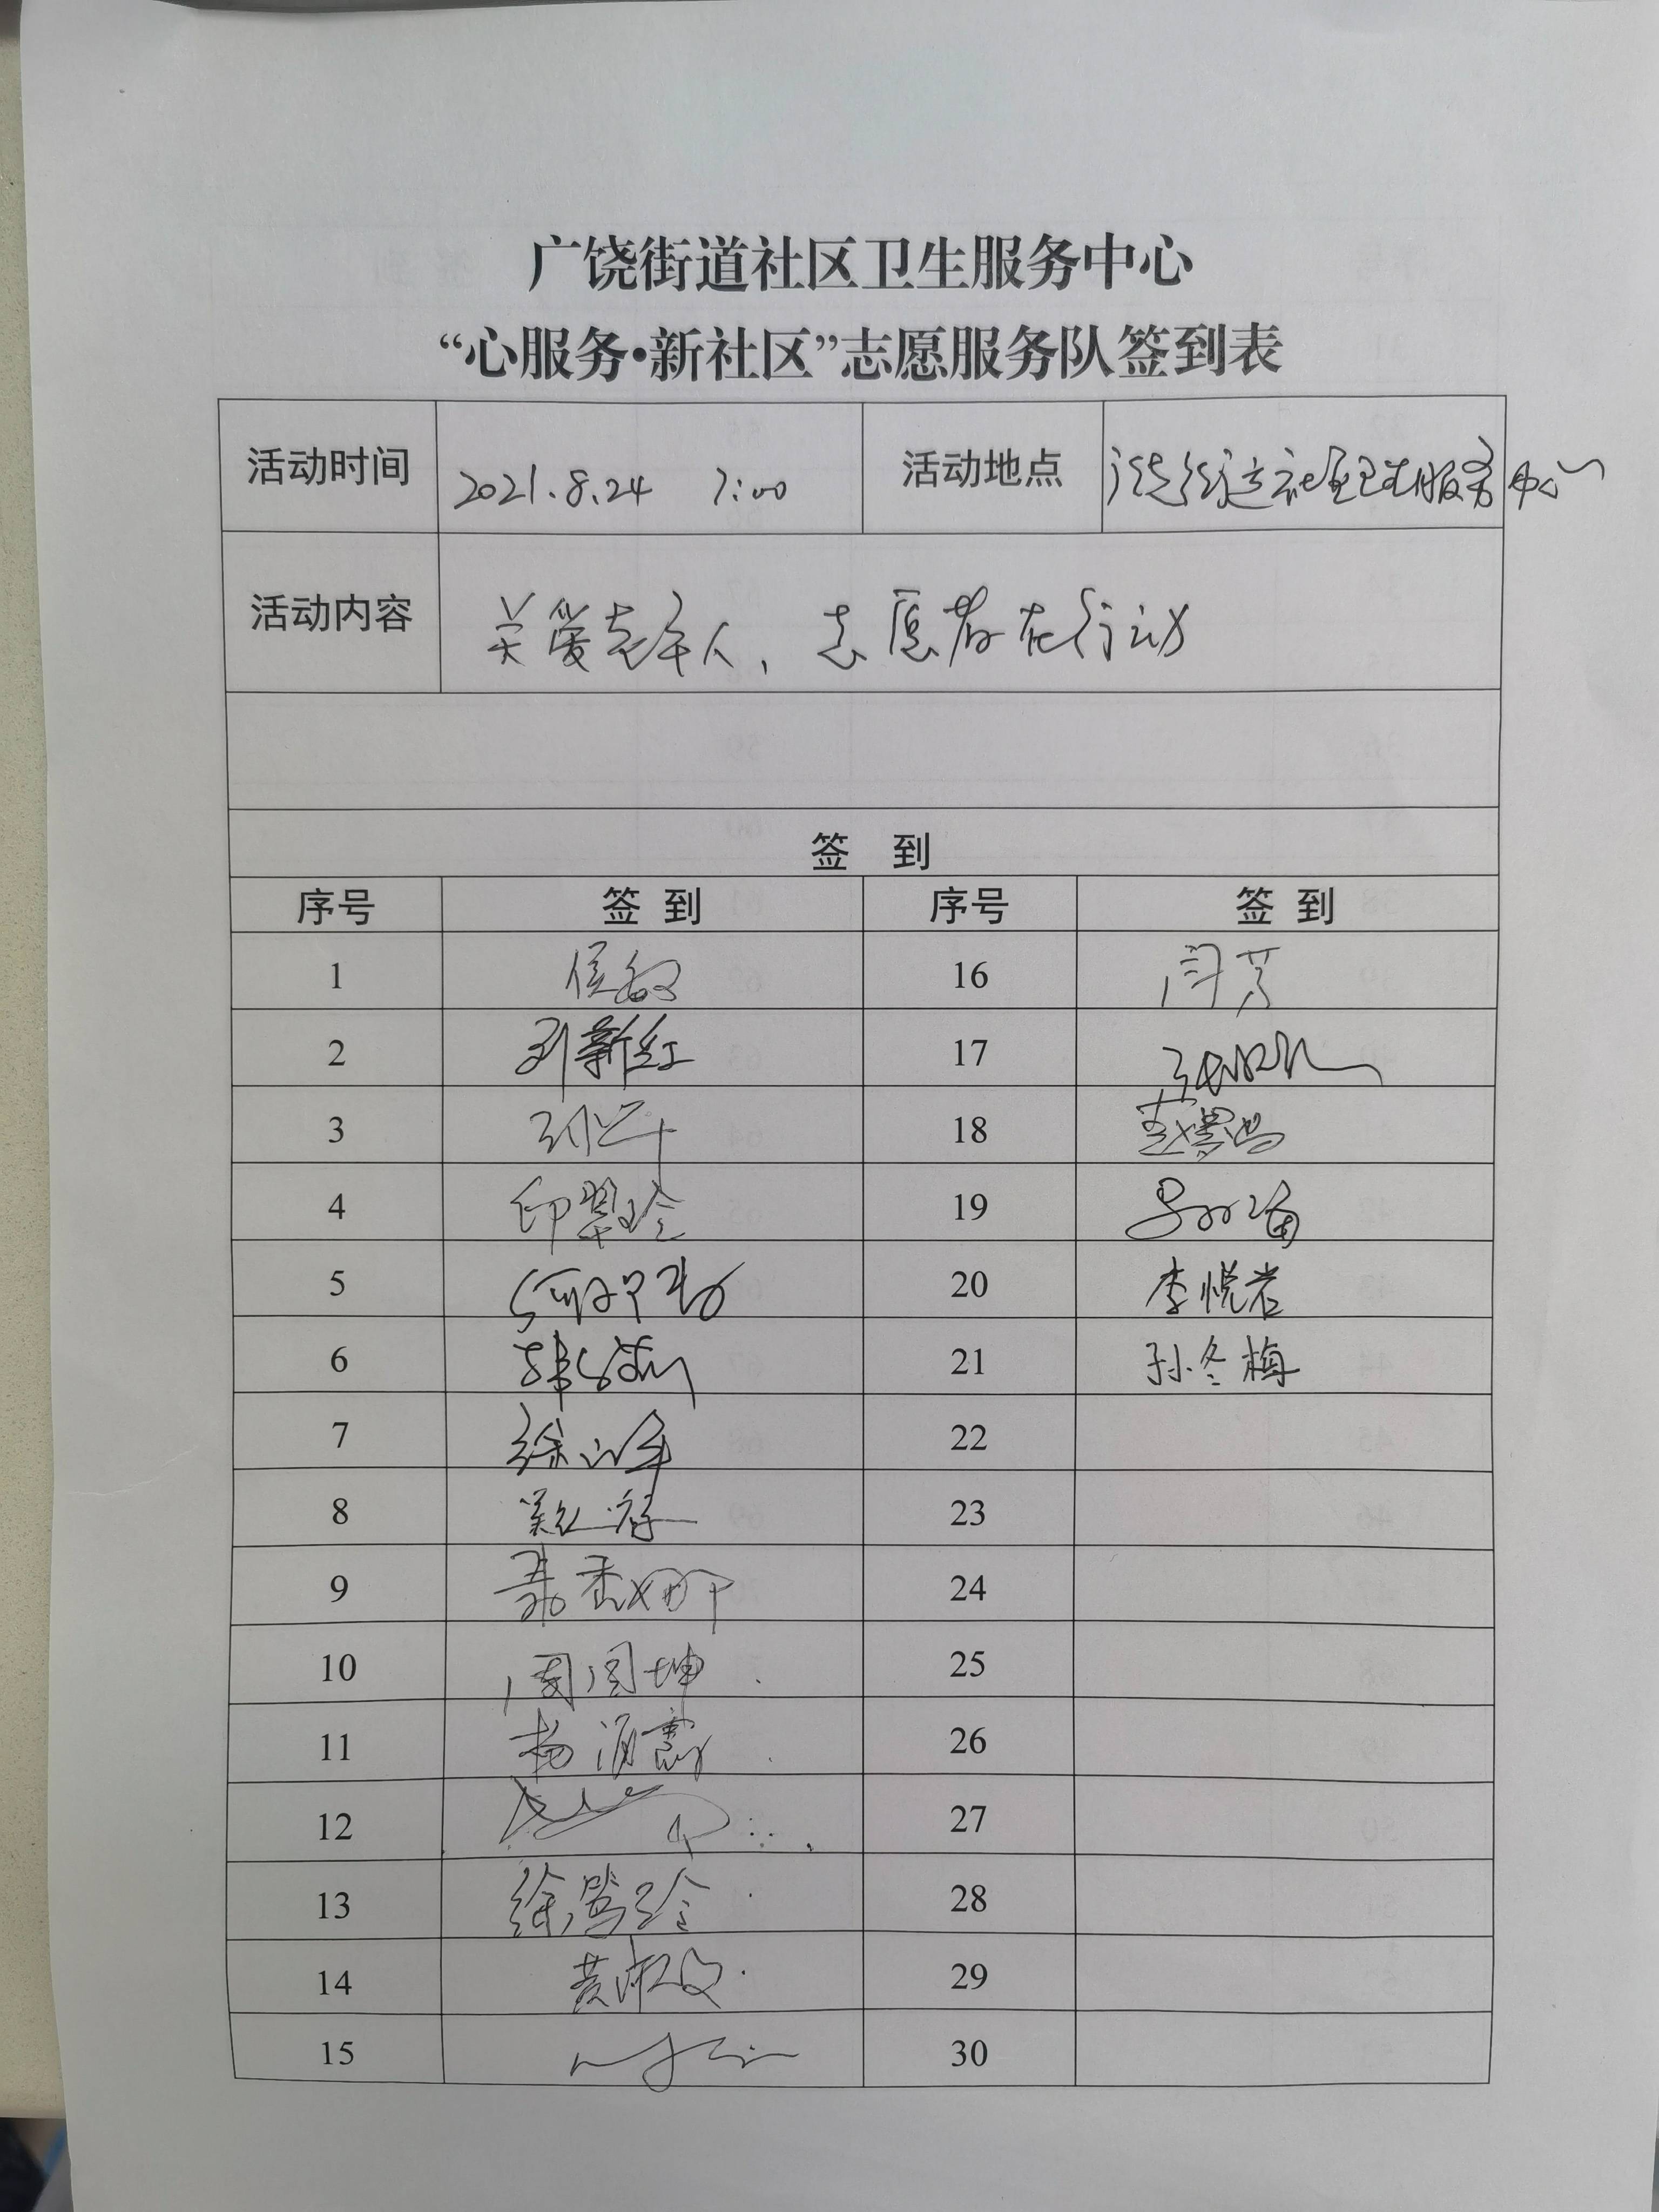 广饶街道社区卫生服务中心
“心服务•新社区”志愿服务队签到表
活动时间 2021.8.24 7:00 活动地点 广饶街道社区卫生服务中心
活动内容 关爱老年人，志愿者在行动
签 到
序号 签 到 序号 签 到
1 侯敏 16 闫芳
2 刘新红 17
3 18
4 印翠玲 19
5 20 李悦岩
6 21 孙冬梅
7 22
8 23
9 24
10 周国坤 25
11 杨 26
12 27
13 徐莺玲 28
14 黄淑文 29
15 30